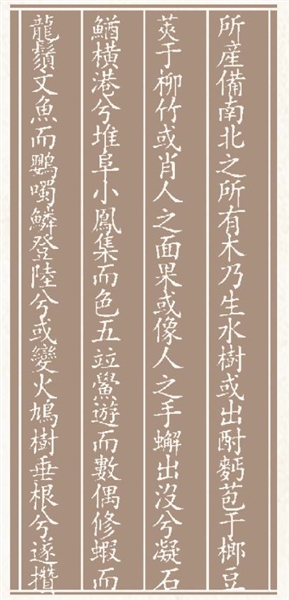 所産備南北之所有木乃生水樹或出酎麪苞于榔豆
莢于柳竹或肖人之面果或像人之手蠏出没兮凝石
鰌橫港兮堆阜小鳳集而色五竝鱟遊而數偶修蝦而
龍鬚文魚而鸚噣鱗登陸兮或變火鳩樹垂根兮遂攢